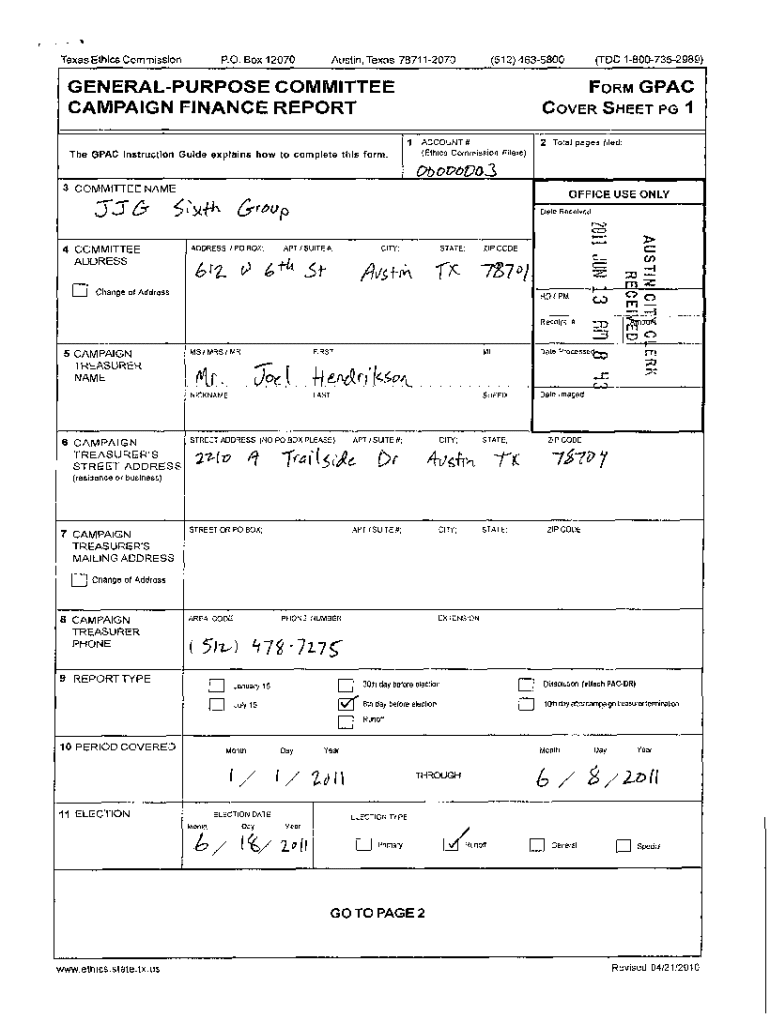 Texas Ethics Commission P.O. Box 12070 Austin, Texas 78711-2070 (512) 463-5800 (TDD 1-800-735-2989)
GENERAL-PURPOSE COMMITTEE
CAMPAIGN FINANCE REPORT
FORM GPAC
COVER SHEET PG 1
The GPAC Instruction Guide explains how to complete this form.
1 ACCOUNT #
(Ethics Commission Filers)
00000003
2 Total pages filed:
3 COMMITTEE NAME
JJG Sixth Group
OFFICE USE ONLY
Date Received
AUSTIN CITY CLERK
RECEIVED
2011 JUN 13 AM 8 43
HD / PM
Receipt # Amount
Date Processed
Date Imaged
4 COMMITTEE
ADDRESS
Change of Address
ADDRESS / PO BOX; APT / SUITE #; CITY; STATE; ZIP CODE
612 W 6th St Austin TX 78701
5 CAMPAIGN
TREASURER
NAME
MS / MRS / MR FIRST MI
Mr. Joel Hendrikson
NICKNAME LAST SUFFIX
6 CAMPAIGN
TREASURER'S
STREET ADDRESS
(residence or business)
STREET ADDRESS (NO PO BOX PLEASE); APT / SUITE #; CITY; STATE; ZIP CODE
2210 A Trailside Dr Austin TX 78704
7 CAMPAIGN
TREASURER'S
MAILING ADDRESS
Change of Address
STREET OR PO BOX; APT / SUITE #; CITY; STATE; ZIP CODE
8 CAMPAIGN
TREASURER
PHONE
AREA CODE PHONE NUMBER EXTENSION
(512) 478-7275
9 REPORT TYPE
January 15 30th day before election Dissolution (attach PAC-DR)
July 15 8th day before election 10th day after campaign treasurer termination
Runoff
10 PERIOD COVERED
Month Day Year Month Day Year
1 / 1 / 2011 THROUGH 6 / 8 / 2011
11 ELECTION
ELECTION DATE
Month Day Year
6 / 18 / 2011
ELECTION TYPE
Primary Runoff General Special
GO TO PAGE 2
www.ethics.state.tx.us Revised 04/21/2010